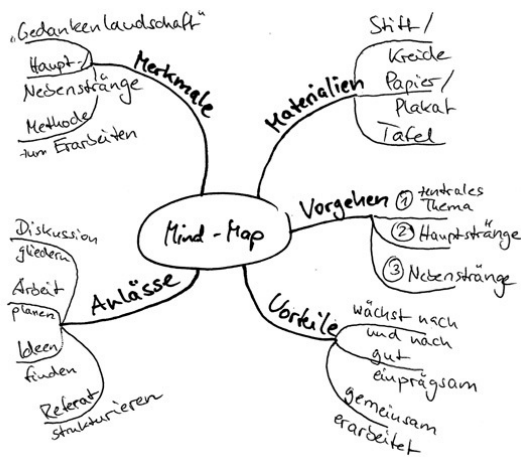 Mind-Map
Merkmale
„Gedankenlandschaft"
Haupt-/
Nebenstränge
Methode
zum Erarbeiten
Materialien
Stift/
Kreide
Papier/
Plakat
Tafel
Vorgehen
① zentrales
Thema
② Hauptstränge
③ Nebenstränge
Vorteile
wächst nach
und nach
gut
einprägsam
gemeinsam
erarbeitet
Anlässe
Diskussion
gliedern
Arbeit
planen
Ideen
finden
Referat
strukturieren